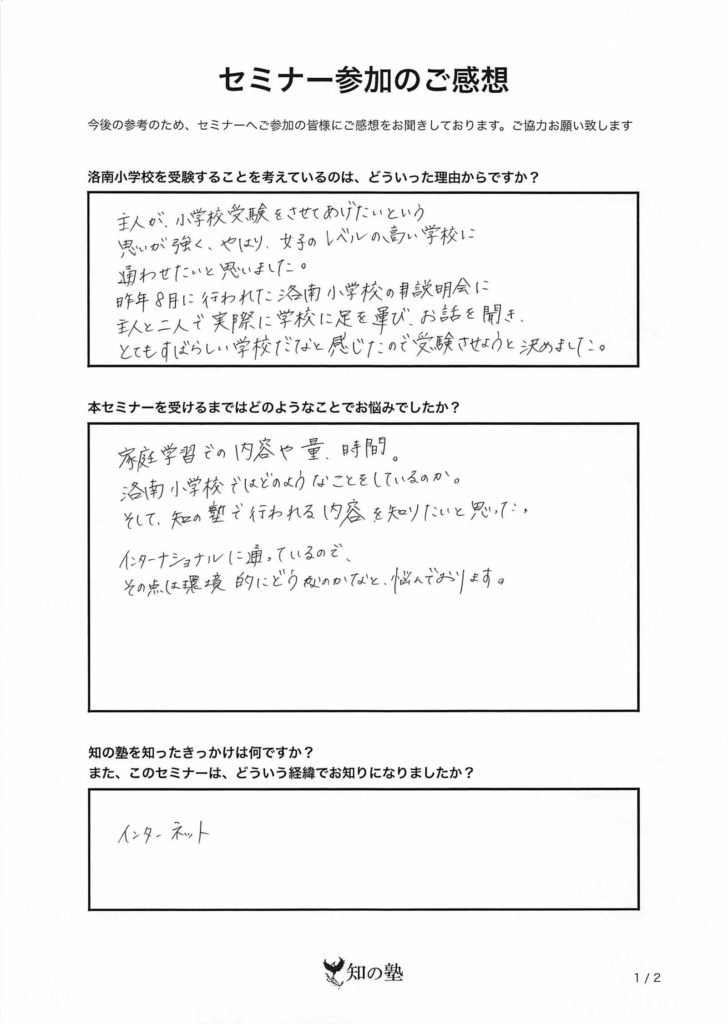 セミナー参加のご感想
今後の参考のため、セミナーへご参加の皆様にご感想をお聞きしております。ご協力お願い致します
洛南小学校を受験することを考えているのは、どういった理由からですか？
主人が、小学校受験をさせてあげたいという
思いが強く、やはり、女子のレベルの高い学校に
通わせたいと思いました。
昨年8月に行われた洛南小学校の説明会に
主人と二人で実際に学校に足を運び、お話を聞き、
とてもすばらしい学校だなと感じたので受験させようと決めました。
本セミナーを受けるまではどのようなことでお悩みでしたか？
家庭学習での内容や量、時間。
洛南小学校ではどのようなことをしているのか。
そして、知の塾で行われる内容を知りたいと思った。
インターナショナルに通っているので、
その点は環境的にどうなのかなと、悩んでおります。
知の塾を知ったきっかけは何ですか？
また、このセミナーは、どういう経緯でお知りになりましたか？
インターネット
知の塾
1 / 2